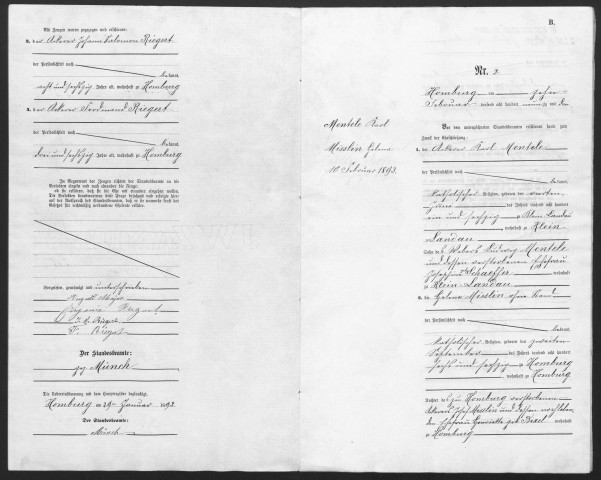 Als Zeugen waren zugezogen und erschienen:
2. der Ackerer Johann Salomon Riegert
der Persönlichkeit nach
bekannt,
acht und sechzig Jahre alt, wohnhaft zu Homburg
3. der Ackerer Ferdinand Riegert
der Persönlichkeit nach
bekannt,
drei und sechzig Jahre alt, wohnhaft zu Homburg
In Gegenwart der Zeugen richtete der Standesbeamte an die
Verlobten einzeln und nach einander die Frage:
ob sie erklären, daß sie die Ehe mit einander eingehen wollen.
Die Verlobten beantworteten diese Frage bejahend und erfolgte hier-
auf der Ausspruch des Standesbeamten, daß er sie nunmehr kraft des
Gesetzes für rechtmäßig verbundene Eheleute erkläre.
Vorgelesen, genehmigt und unterschrieben
Riegert
J. S. Riegert
F. Riegert
Der Standesbeamte:
gez. Münch
Die Uebereinstimmung mit dem Hauptregister beglaubigt.
Homburg am 29. Januar 1893
Der Standesbeamte:
Münch
B.
Nr. 2
Homburg am zehn
Februar tausend acht hundert neunzig und drei
Mentele Karl
Misslin Helena
10. Februar 1893.
Vor dem unterzeichneten Standesbeamten erschienen heute zum
Zweck der Eheschließung:
1. der Ackerer Karl Mentele
der Persönlichkeit nach
bekannt,
katholischer Religion, geboren den vierten
Juni des Jahres tausend acht hundert
ein und sechzig zu Klein Landau
, wohnhaft zu Klein
Landau
Sohn des Webers Ludwig Mentele
und dessen verstorbenen Ehefrau
Schaeffer wohnhaft
zu Klein Landau
2. die Helena Misslin ohne Stand
der Persönlichkeit nach
bekannt,
katholischer Religion, geboren den zweiten
September des Jahres tausend acht hundert
sechs und sechzig zu Homburg
, wohnhaft zu Homburg
Tochter des zu Homburg verstorbenen
Ackerers Josef Misslin und dessen
Ehefrau Henriette geb. Bixel wohnhaft
zu Homburg